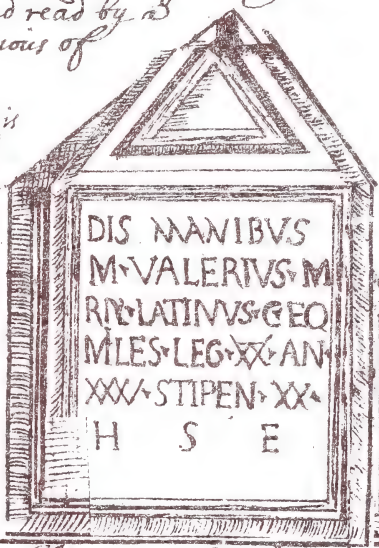 d read by a
ious of
is
DIS MANIBVS
M·VALERIVS·M
RIV·LATINVS·C·EQ
MILES·LEG·XX·AN·
XXXV·STIPEN·XX·
H S E